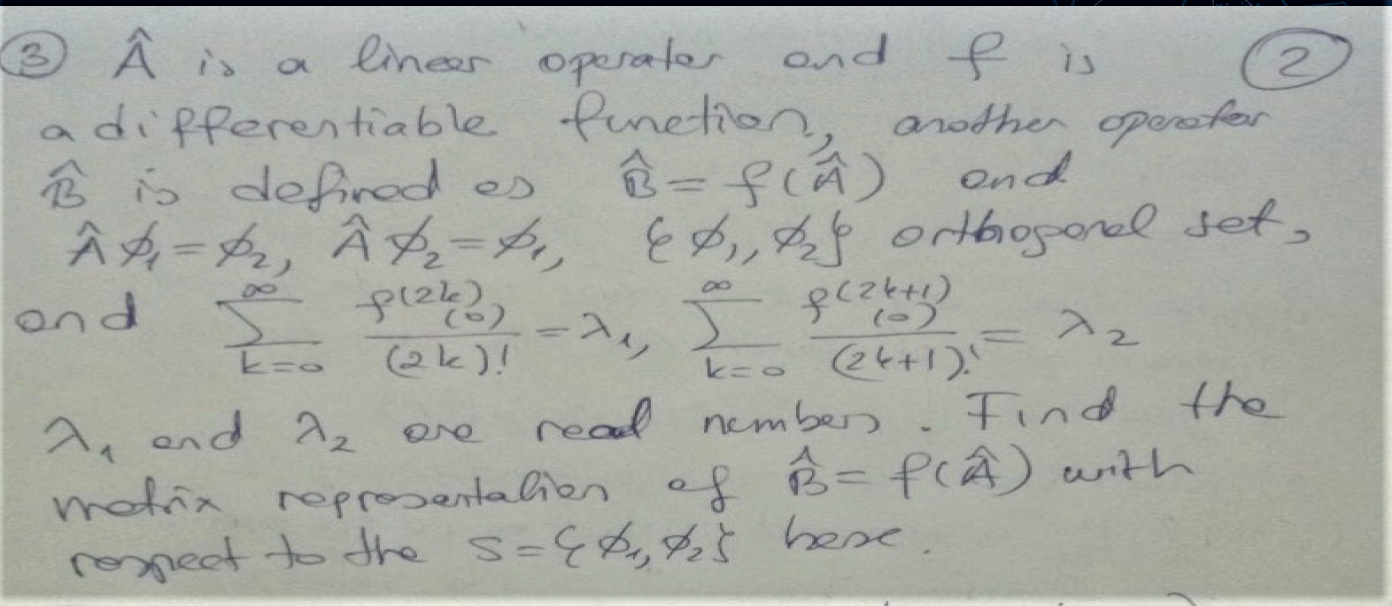 ③ Â is a linear operator and f is ②
a differentiable function, another operator
B̂ is defined as B̂ = f(Â) and
Âϕ₁ = ϕ₂, Âϕ₂ = ϕ₁, {ϕ₁, ϕ₂} orthogonal set,
and ∑_{k=0}^{∞} f^{(2k)}(0)/(2k)! = λ₁, ∑_{k=0}^{∞} f^{(2k+1)}(0)/(2k+1)! = λ₂
λ₁ and λ₂ are real numbers. Find the
matrix representation of B̂ = f(Â) with
respect to the S = {ϕ₁, ϕ₂} base.